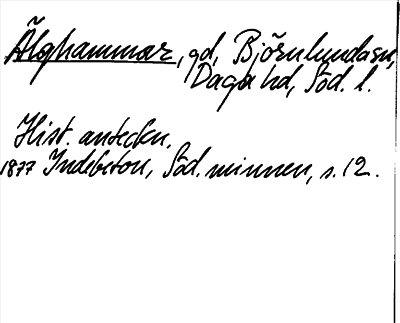 Älghammar, gd, Björnlundasn,
Daga hd, Söd. l.
Hist. anteckn.
1877 Indebetou, Söd. minnen, s. 12.